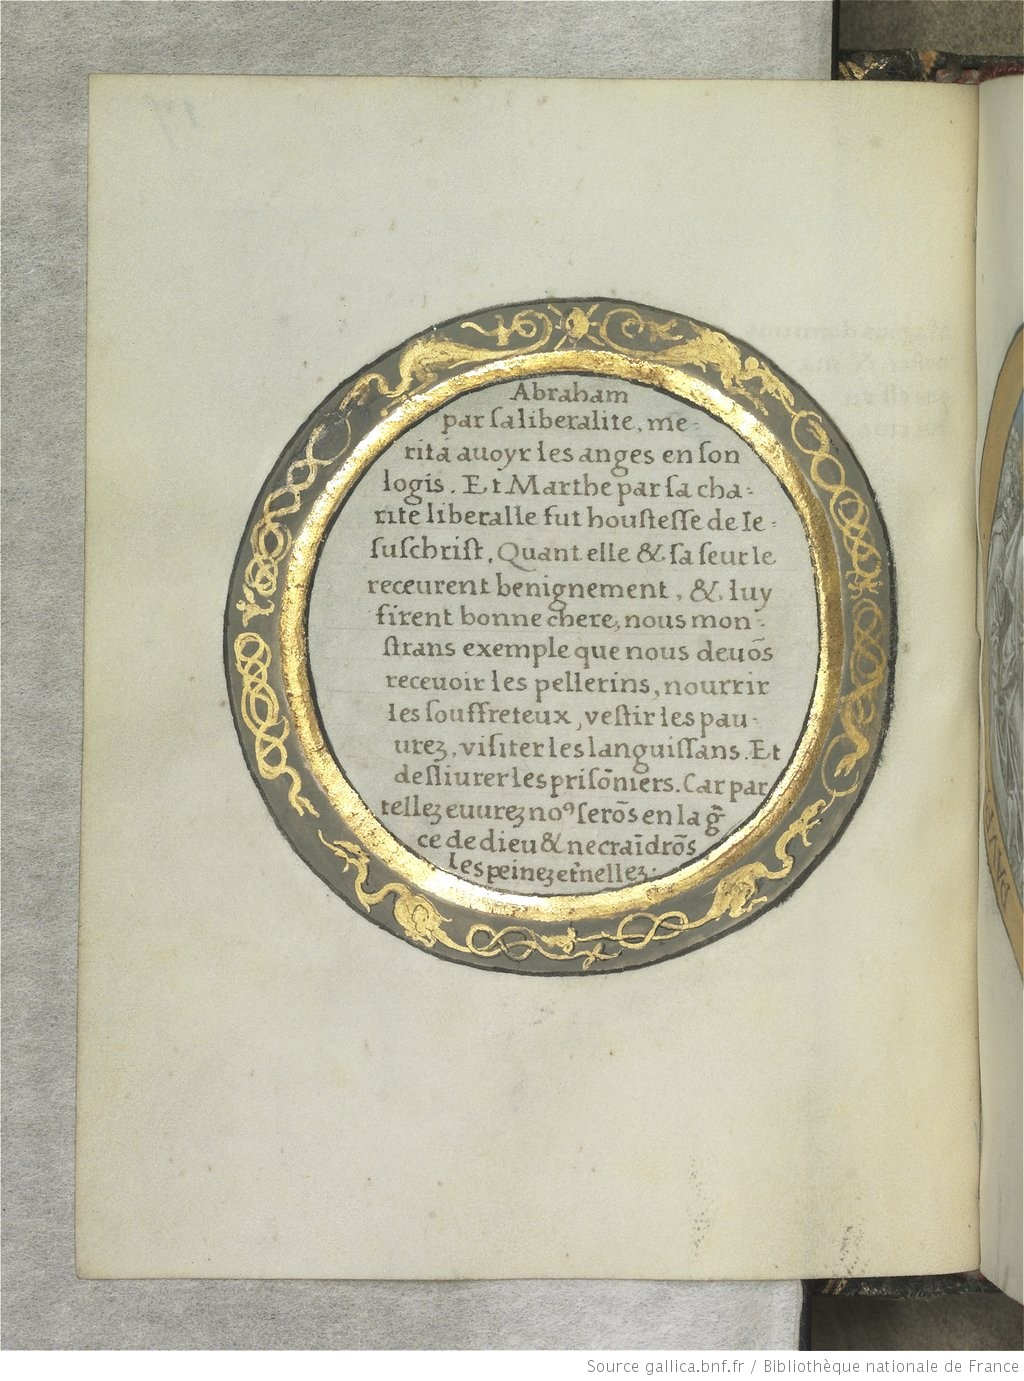 Abraham
par sa liberalite, me-
rita auoyr les anges en son
logis. Et Marthe par sa cha-
rite liberalle fut houstesse de Ie-
suschrist. Quant elle & sa seur le
receurent benignement, & luy
firent bonne chere, nous mon-
strans exemple que nous deuōs
receuoir les pellerins, nourrir
les souffreteux, vestir les pau-
urez, visiter les languissans. Et
desliurer les prisōniers. Car par
tellez euurez noꝰ serōs en la gr̄
ce de dieu & ne craīdrōs
les peinez et̄nellez:
Source gallica.bnf.fr / Bibliothèque nationale de France